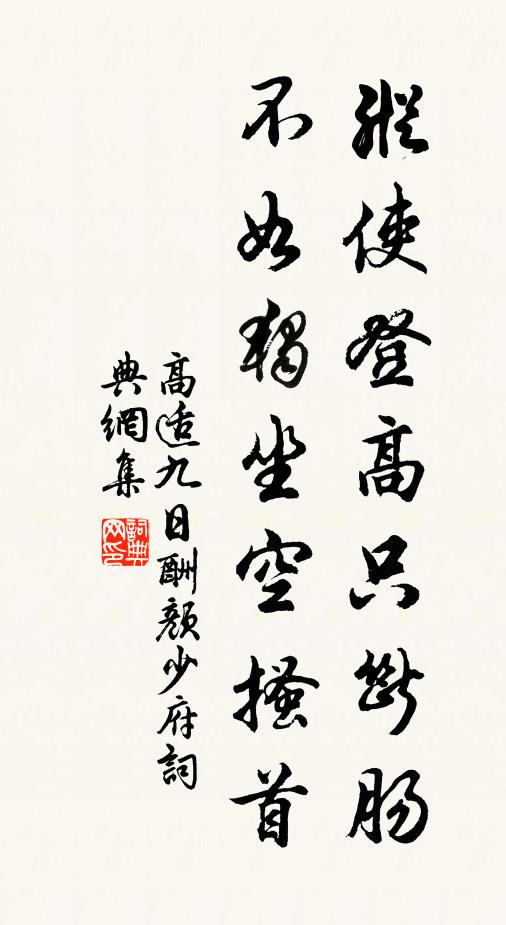 縱使登高只斷腸
不如獨坐空搔首
高適九日酬顏少府詞
典網集
詞典
网印